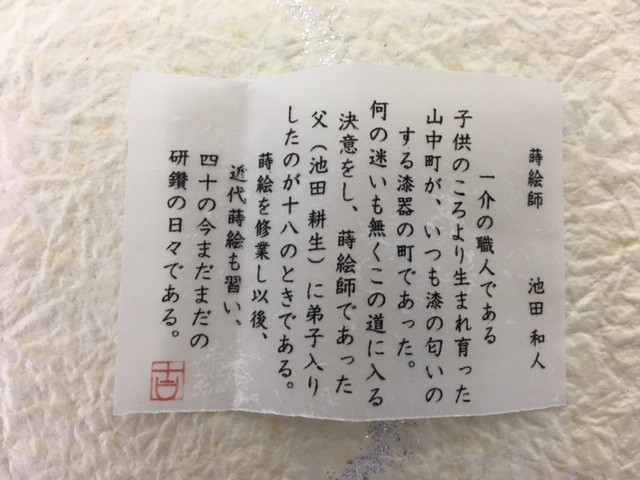 蒔絵師　　池田 和人
一介の職人である
子供のころより生まれ育った
山中町が、いつも漆の匂いの
する漆器の町であった。
何の迷いも無くこの道に入る
決意をし、蒔絵師であった
父（池田 耕生）に弟子入り
したのが十八のときである。
蒔絵を修業し以後、
近代蒔絵も習い、
四十の今まだまだの
研鑽の日々である。